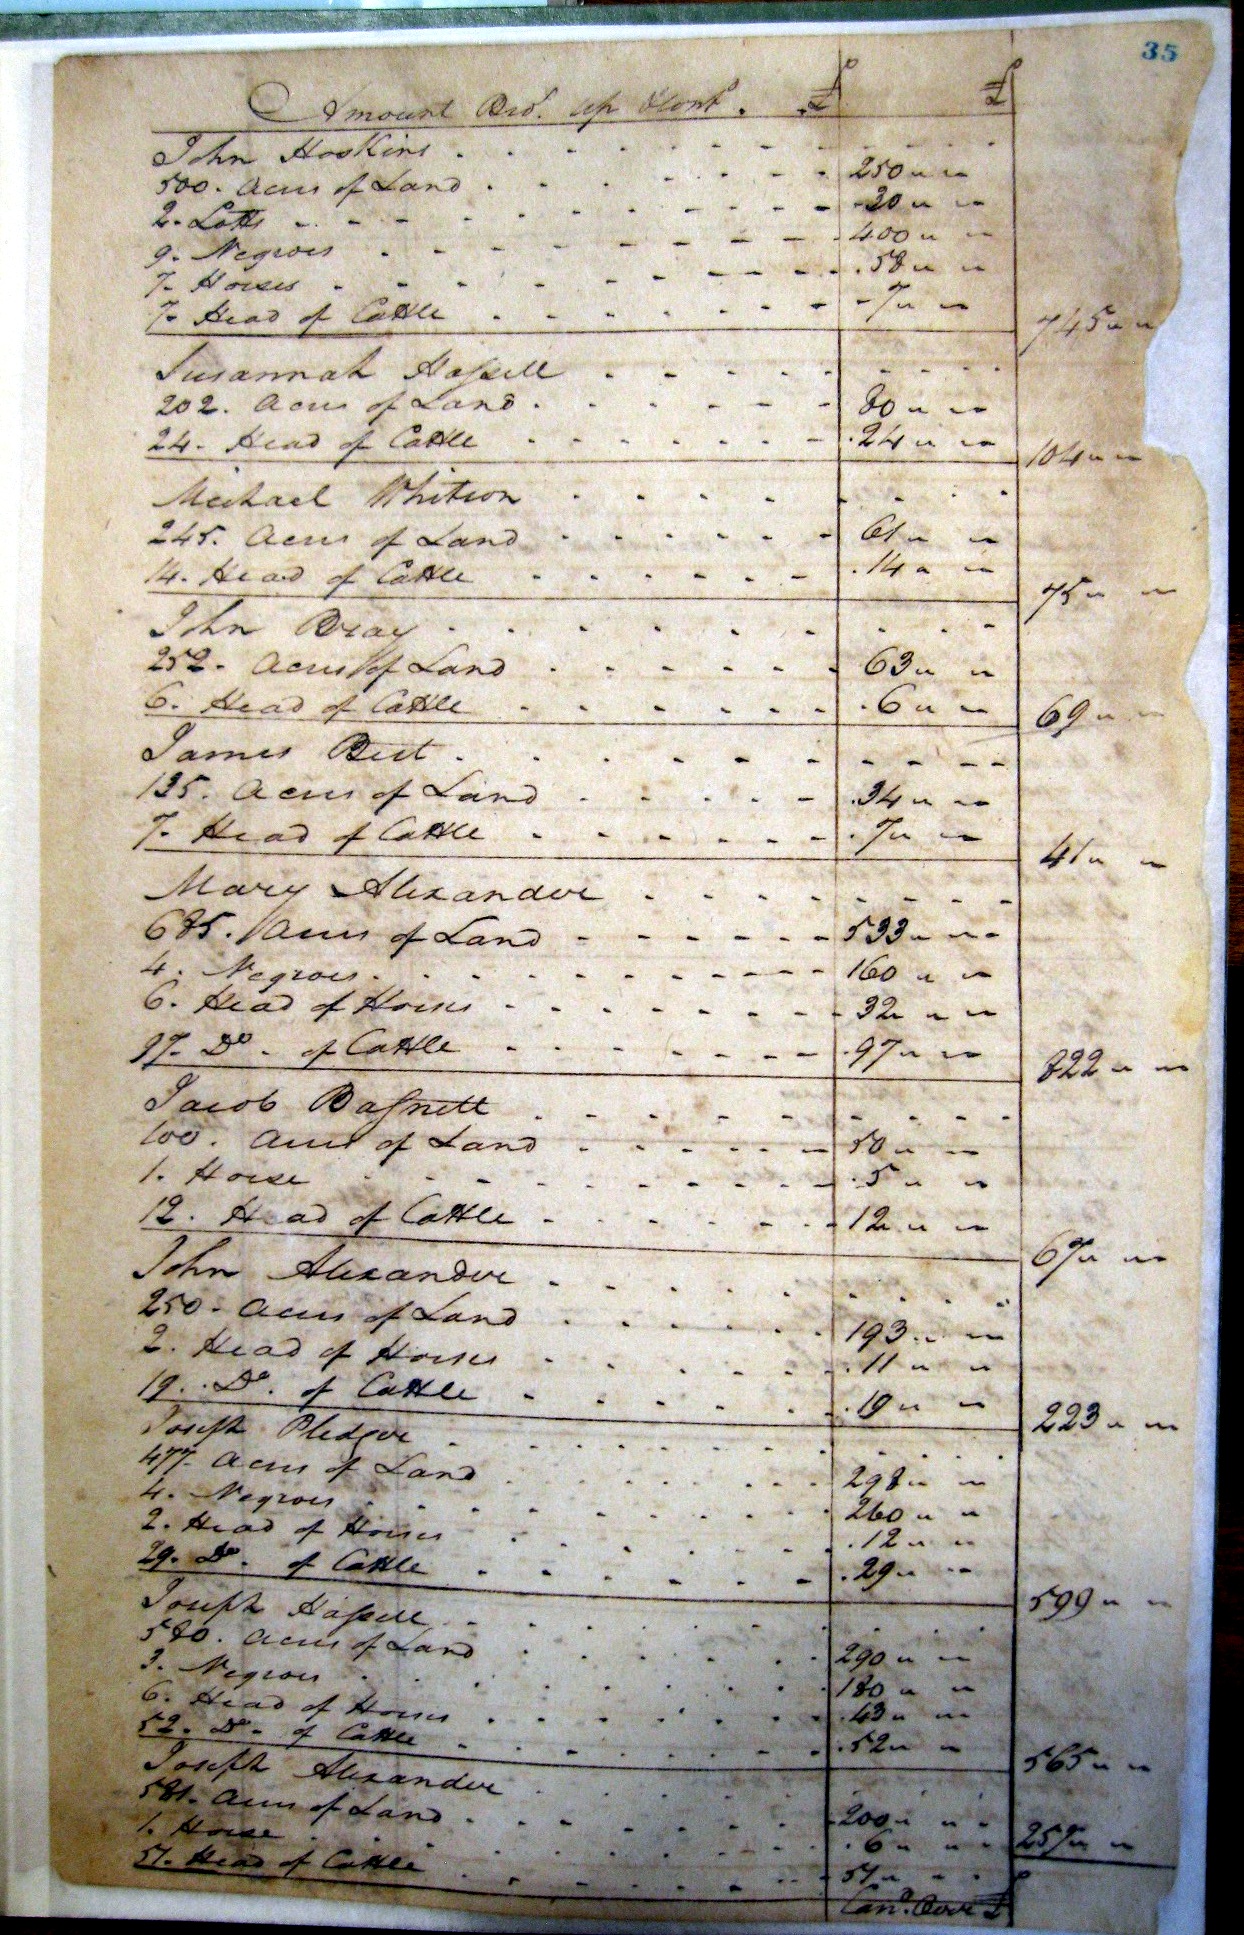 35
Amount Bro.^t up Cont^d . £ £
John Hoskins
500. Acres of Land 250 " "
2. Lotts 30 " "
9. Negroes 400 " "
7. Horses 58 " "
7. Head of Cattle 7 " " 745 " "
Susannah Hassell
202. Acres of Land 80 " "
24. Head of Cattle 24 " " 104 " "
Michael Whitson
245. Acres of Land 61 " "
14. Head of Cattle 14 " " 75 " "
John Bray
252. Acres of Land 63 " "
6. Head of Cattle 6 " " 69 " "
James Best
135. Acres of Land 34 " "
7. Head of Cattle 7 " " 41 " "
Mary Alexander
685. Acres of Land 533 " "
4. Negroes 160 " "
6. Head of Horses 32 " "
97. D^o. of Cattle 97 " " 822 " "
Jacob Basnett
100. Acres of Land 50 " "
1. Horse 5 " "
12. Head of Cattle 12 " " 67 " "
John Alexander
250. Acres of Land 193 " "
2. Head of Horses 11 " "
19. D^o. of Cattle 19 " " 223 " "
Joseph Pledger
477. Acres of Land 298 " "
4. Negroes 260 " "
2. Head of Horses 12 " "
29. D^o. of Cattle 29 " " 599 " "
Joseph Hassell
580. Acres of Land 290 " "
3. Negroes 180 " "
6. Head of Horses 43 " "
52. D^o. of Cattle 52 " " 565 " "
Joseph Alexander
581. Acres of Land 200 " "
1. Horse 6 " " 257 " "
51. Head of Cattle 51 " "
Can^d. Over £